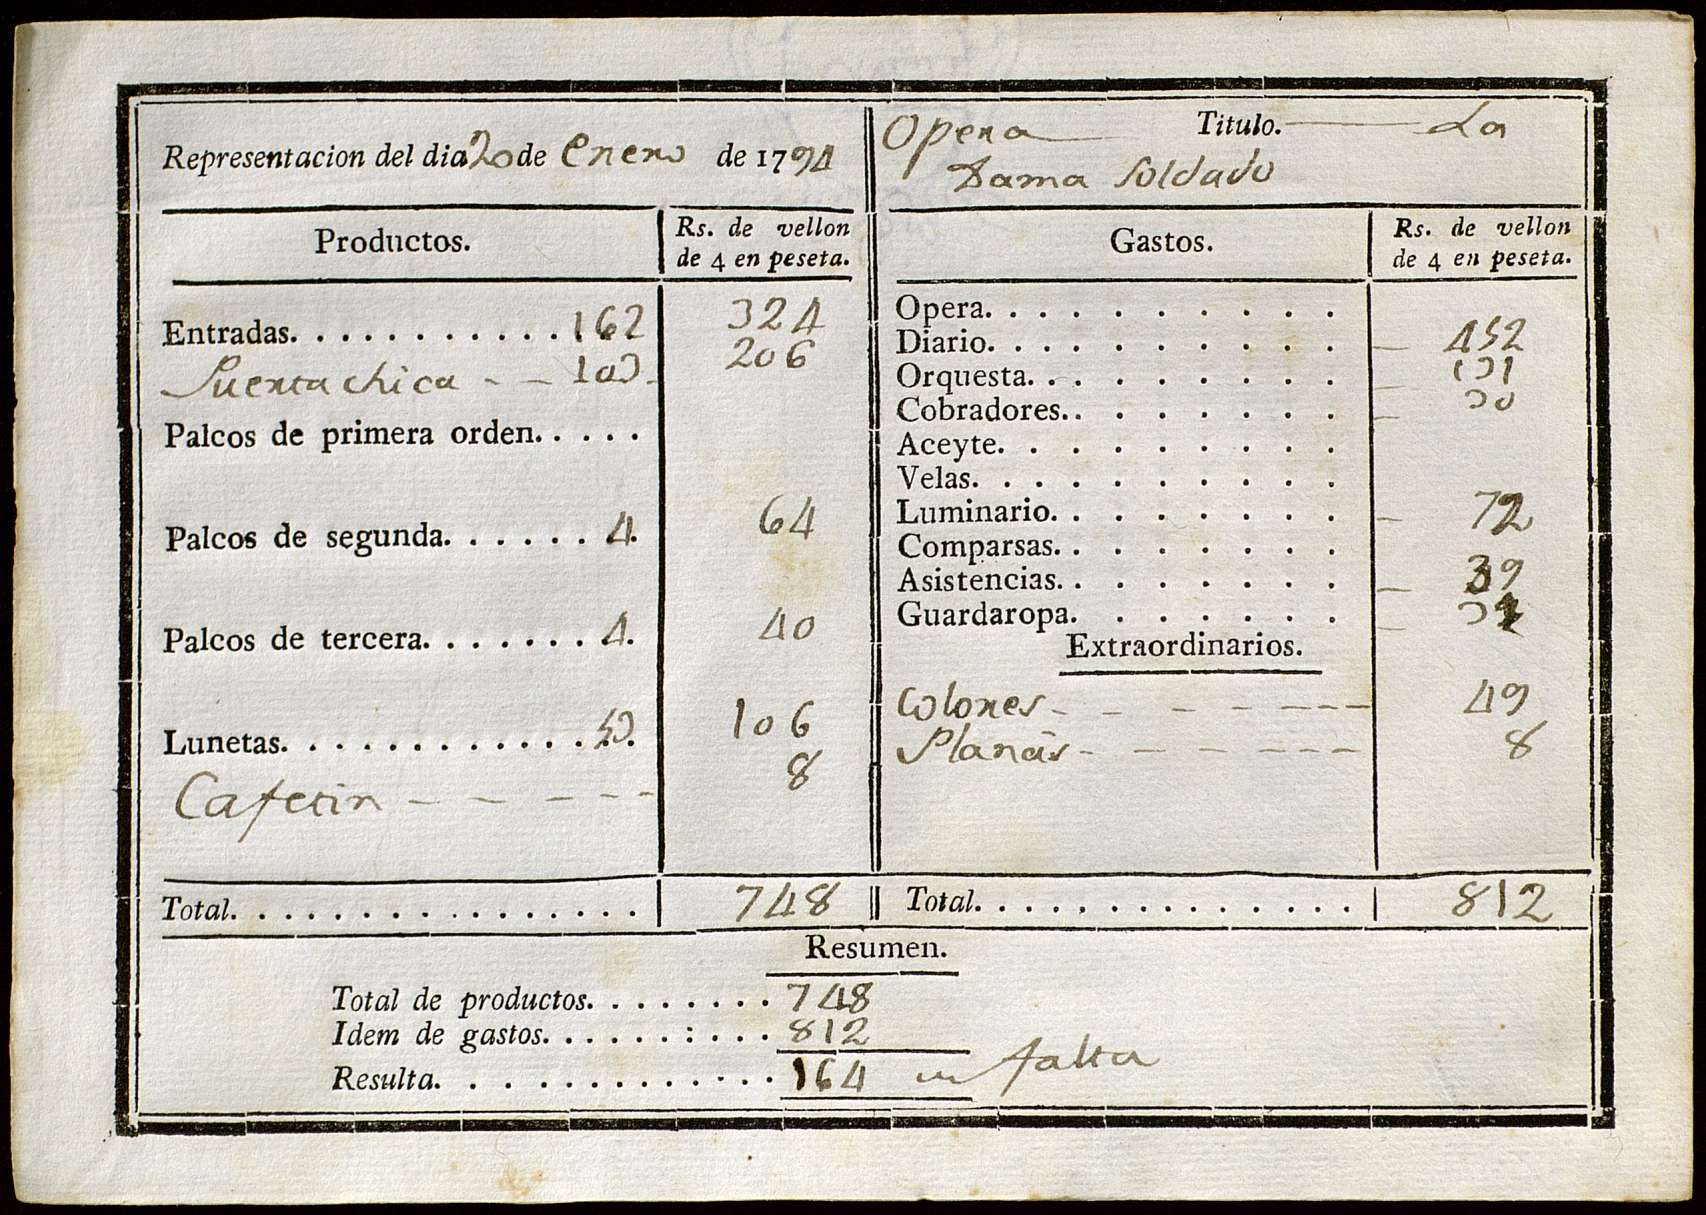 Representacion del dia 20 de Enero de 1794
Opera Titulo. La
Dama Soldado
Productos.
Rs. de vellon
de 4 en peseta.
Entradas. 162 324
Puerta chica 103 206
Palcos de primera orden.
Palcos de segunda. 4. 64
Palcos de tercera. 4. 40
Lunetas. 53. 106
Cafetin 8
Total. 748
Gastos.
Rs. de vellon
de 4 en peseta.
Opera.
Diario. 452
Orquesta. 131
Cobradores. 30
Aceyte.
Velas.
Luminario. 72
Comparsas.
Asistencias. 39
Guardaropa.
Extraordinarios.
Colones 49
8
Total. 812
Resumen.
Total de productos. 748
Idem de gastos. 812
Resulta. 164 falta